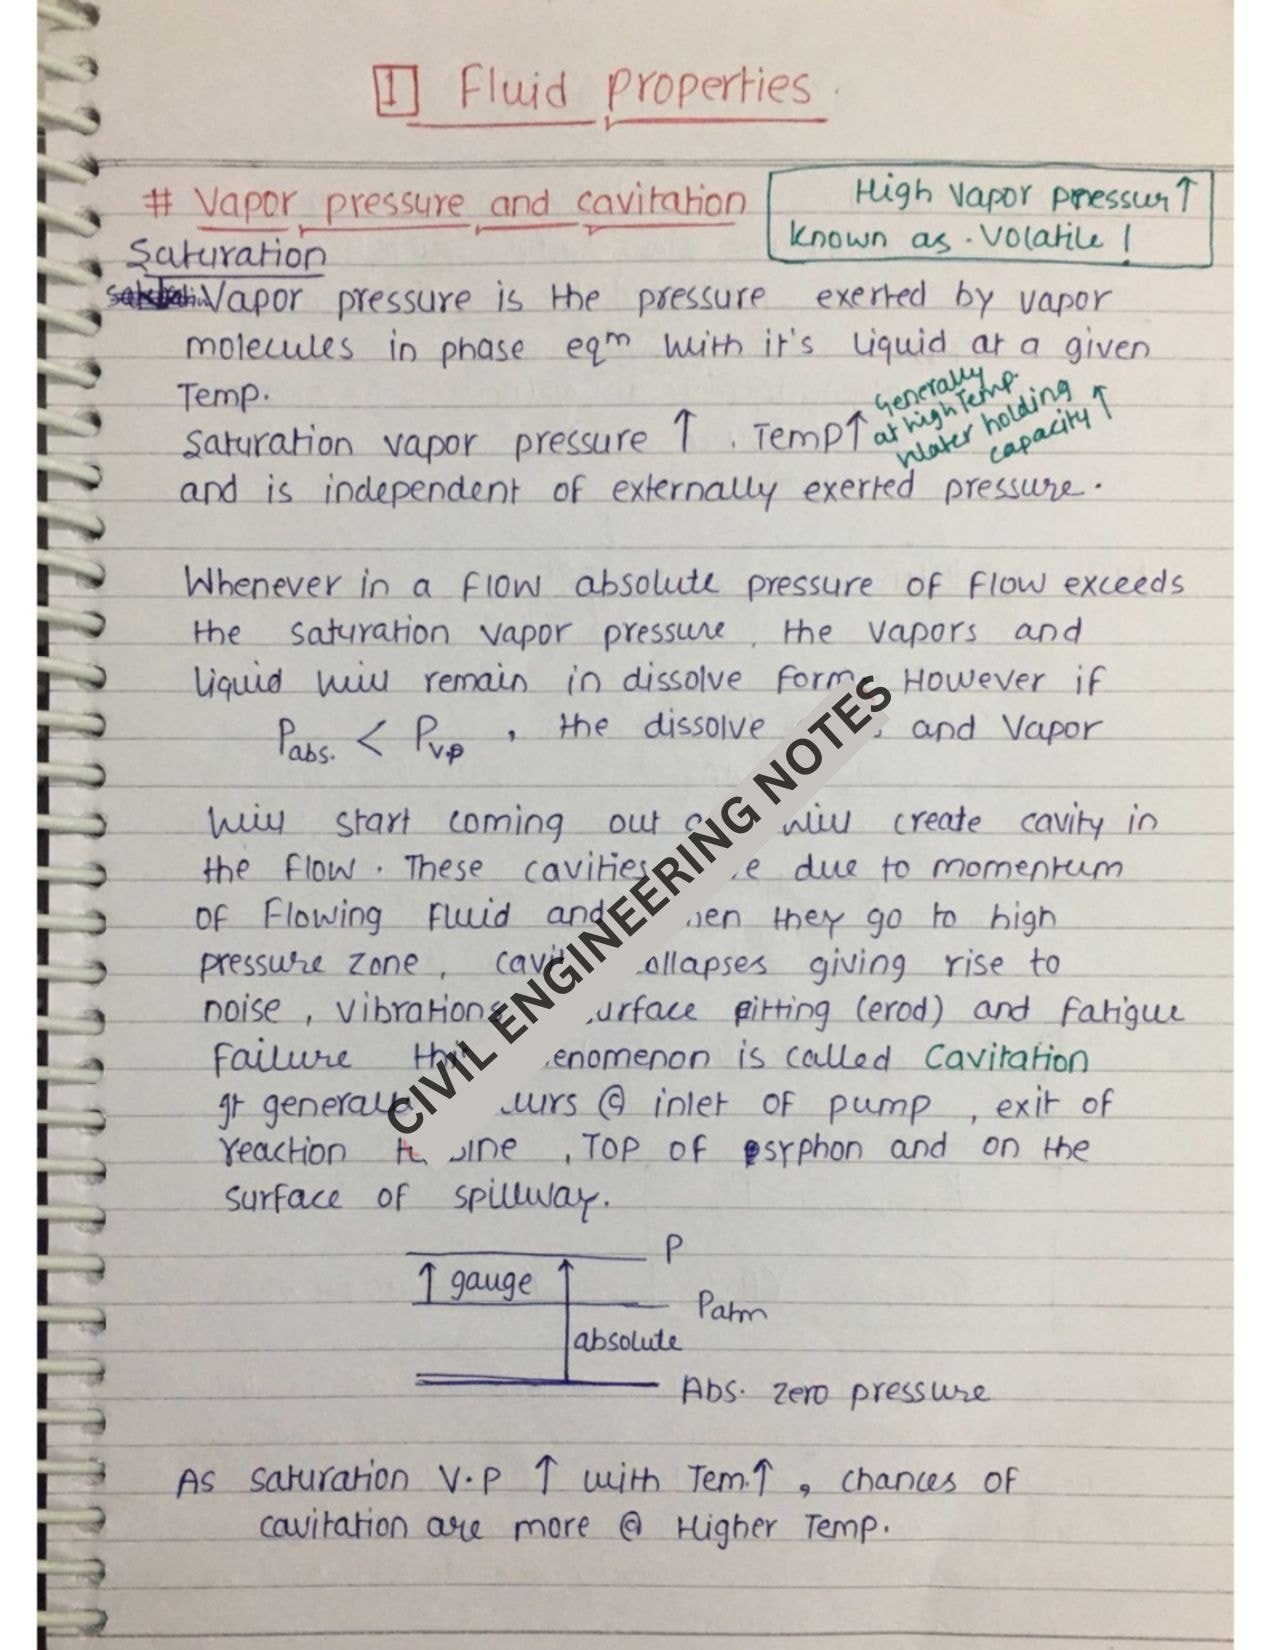 1 Fluid Properties.
# Vapor pressure and cavitation
High Vapor pressur ↑
known as. Volatile!
Saturation
Vapor pressure is the pressure exerted by vapor
molecules in phase eqm with it's liquid at a given
Temp.
Saturation vapor pressure ↑ . Temp↑
Generally
at high Temp.
Water holding
capacity ↑
and is independent of externally exerted pressure.
Whenever in a flow absolute pressure of flow exceeds
the saturation vapor pressure, the vapors and
liquid will remain in dissolve form. However if
Pabs. < Pv.p , the dissolve and Vapor
will start coming out will create cavity in
the flow. These cavities due to momentum
of flowing fluid and they go to high
pressure zone, collapses giving rise to
noise, vibrations surface pitting (erod) and fatigue
failure this phenomenon is called Cavitation
It generally occurs @ inlet of pump, exit of
reaction turbine, TOP of syphon and on the
surface of spillway.
P
↑ gauge
Patm
absolute
Abs. zero pressure
As saturation V.P ↑ with Tem.↑, chances of
cavitation are more @ Higher Temp.
CIVIL ENGINEERING NOTES